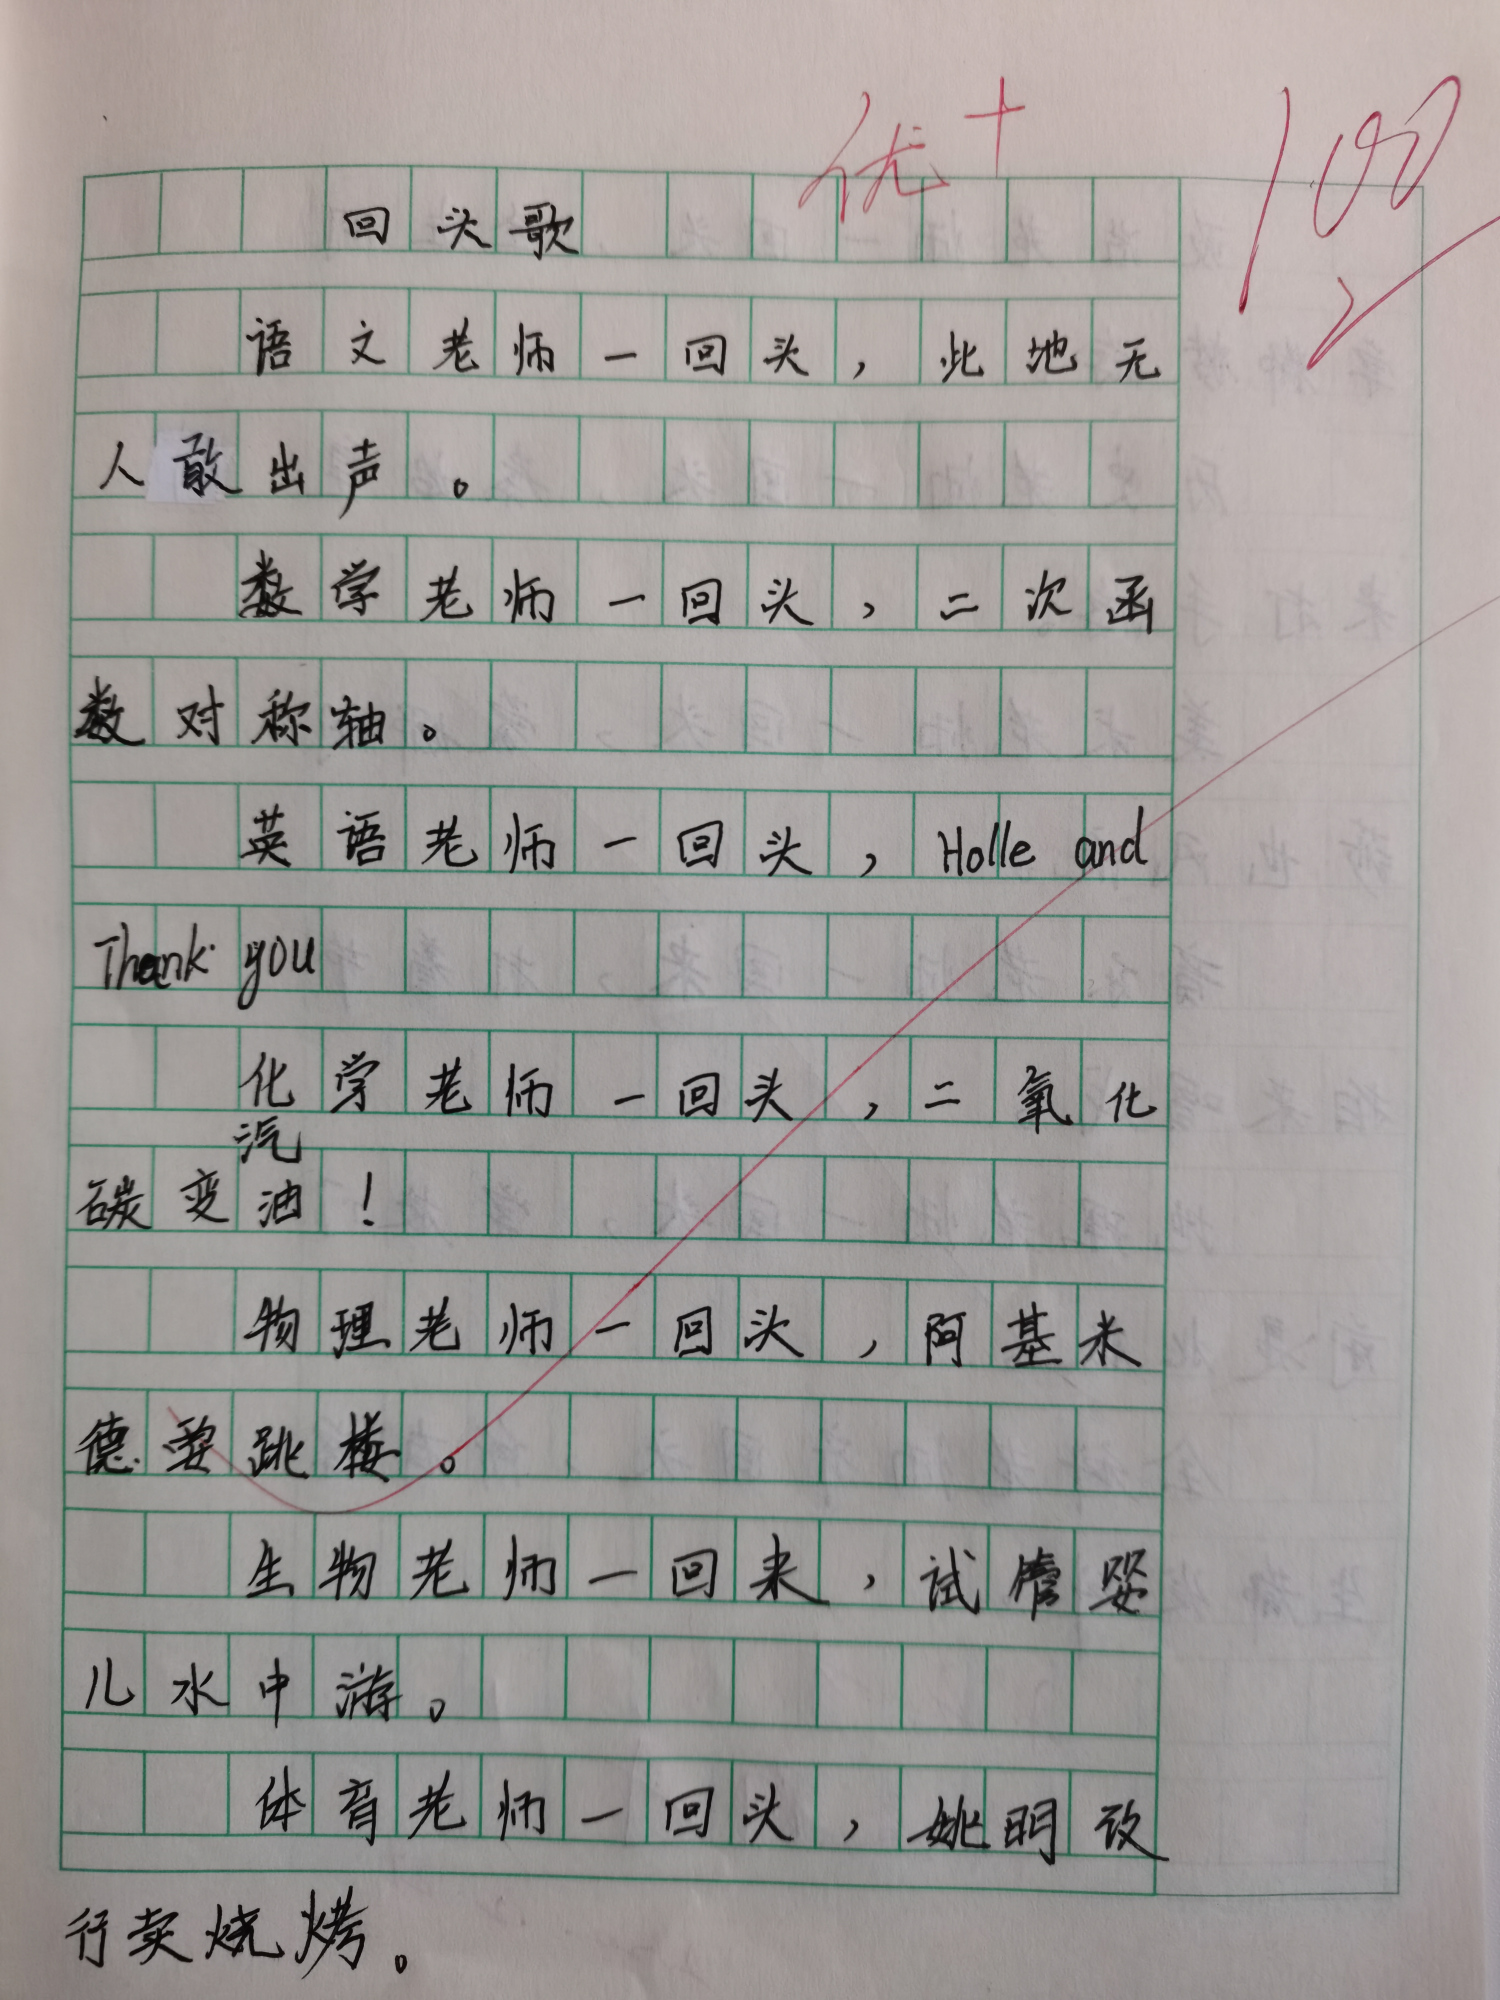 优+
100
回头歌
语文老师一回头，此地无
人敢出声。
数学老师一回头，二次函
数对称轴。
英语老师一回头，Holle and
Thank you
化学老师一回头，二氧化
汽
碳变油！
物理老师一回头，阿基米
德要跳楼。
生物老师一回来，试管婴
儿水中游。
体育老师一回头，姚明改
行卖烧烤。